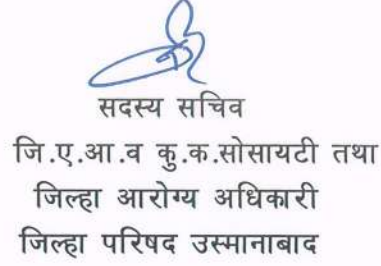 सदस्य सचिव
जि.ए.आ.व कु.क.सोसायटी तथा
जिल्हा आरोग्य अधिकारी
जिल्हा परिषद उस्मानाबाद